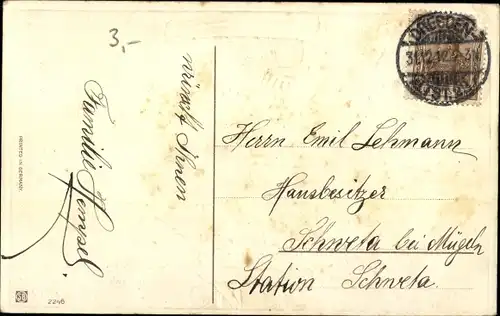 3,-
wünscht Ihnen
Familie Hensel.
PRINTED IN GERMANY
2246
DRESDEN-
31.12.12
Herrn Emil Lehmann
Hausbesitzer
Schweta bei Mügeln
Station Schweta.